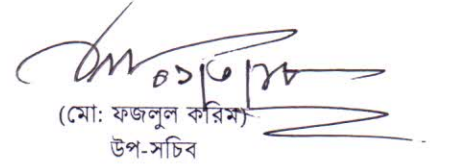 (মো: ফজলুল করিম)
উপ-সচিব